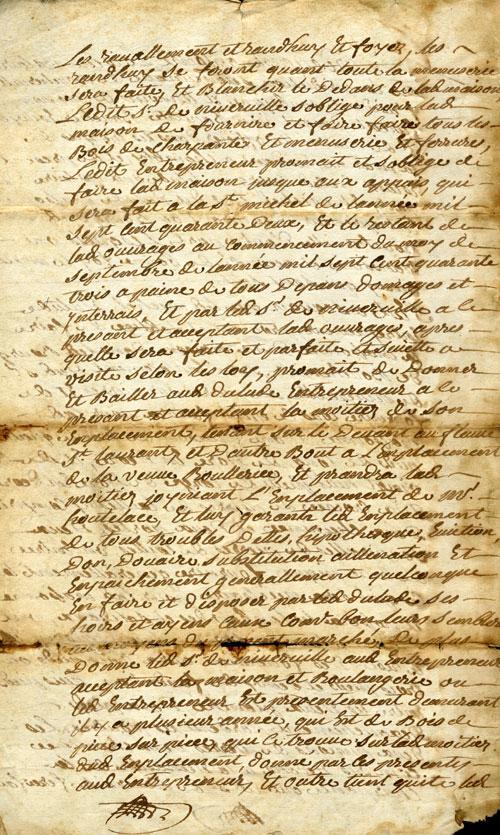 Les ravallement et randhuy Et foyez, les
randhuy se feront quant toute la menuserie
sera faite, Et Blancher le Dedans de lad maison
Ledit Sr. de niverville soblige pour lad
maison de fournire et faire faire tous les
Bois de charpante Et menuserie Et ferures,
Ledit Entrepreneur promait et soblege de
faire lad maison jusque aux appuis, qui
sera fait a la St. michel de lannée mil
sept cent quarante Deux, Et le restant de
lad ouvrages au commencement du moy de
septembre de lannée mil sept Cent quarante
trois a paine de tous Depans domages et
ynterrais, Et par led Sr. de niverville a le
presant et acceptant lad ouvrages, apres
quelle sera faite et parfaite Et
visite selon les loy, promait, de Donner
Et Bailler aud dalude Entrepreneur a le
presant et acceptant la moitier de son
Emplacement, tenant sur le Devant au fleuve
St. laurant, et Dautre Bout a L'emplacement
de la veuve Boullerice, Et prandra lad
moitier joyniant L'Emplacement de Mr.
Et luy garanti led Emplacement
de tous troubles Dettes, hipotheque, Eviction
Don, Douaire substitution aillenation Et
Enpaichement generallement quelconque
En faire et disposer par led dalude ses
hoirs et ayens cause Comme bon leurs semblera
au moyens du present marche, De plus
Donne led Sr. de niverville aud Entrepreneur
acceptant la maison et Boulangerie ou
led Entrepreneur Est presentement demurant
il y a plusieur année, qui Est de Bois de
piece sur piece, qui ce trouve sur lad moitier
dud Emplacement donne par ces presentes
aud Entrepreneur, Et outre tient quite led